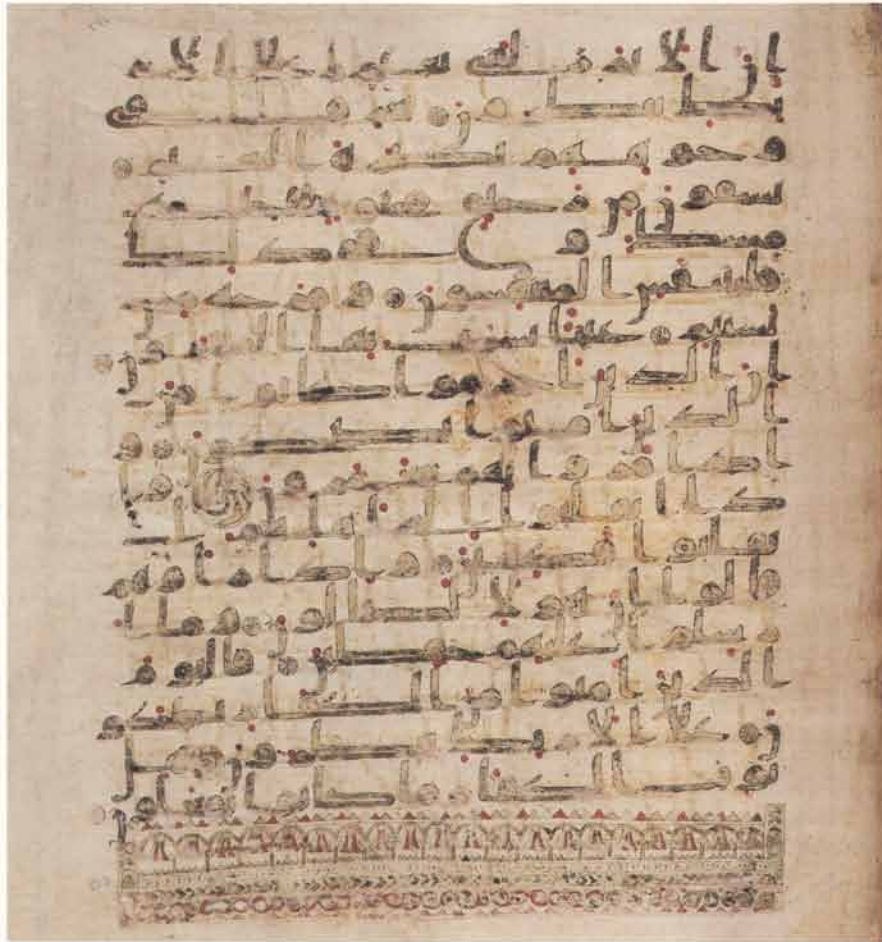 ان الابرر لفى نعيم على الار
ئك ينظرون تعرف فى
وجوههم نضرة النعيم
يسقون من رحيق مختوم ختمه
مسك وفى ذلك
فليتنفس المتنفسون ومزجه من
تسنيم عينا يشرب بها المقربون
ان الذين اجرموا كانوا من
الذين امنوا يضحكون و
اذا مروا بهم يتغامزون واذا
انقلبوا الى اهلهم ا
نقلبوا فكهين واذا راوهم
قالوا ان هولا لضالون وما ا
رسلوا عليهم حفظين فاليوم
الذين امنوا من الكفار يضحكو
ن على الارئك ينظرون هل
ثوب الكفار ما كانوا يفعلو
ن